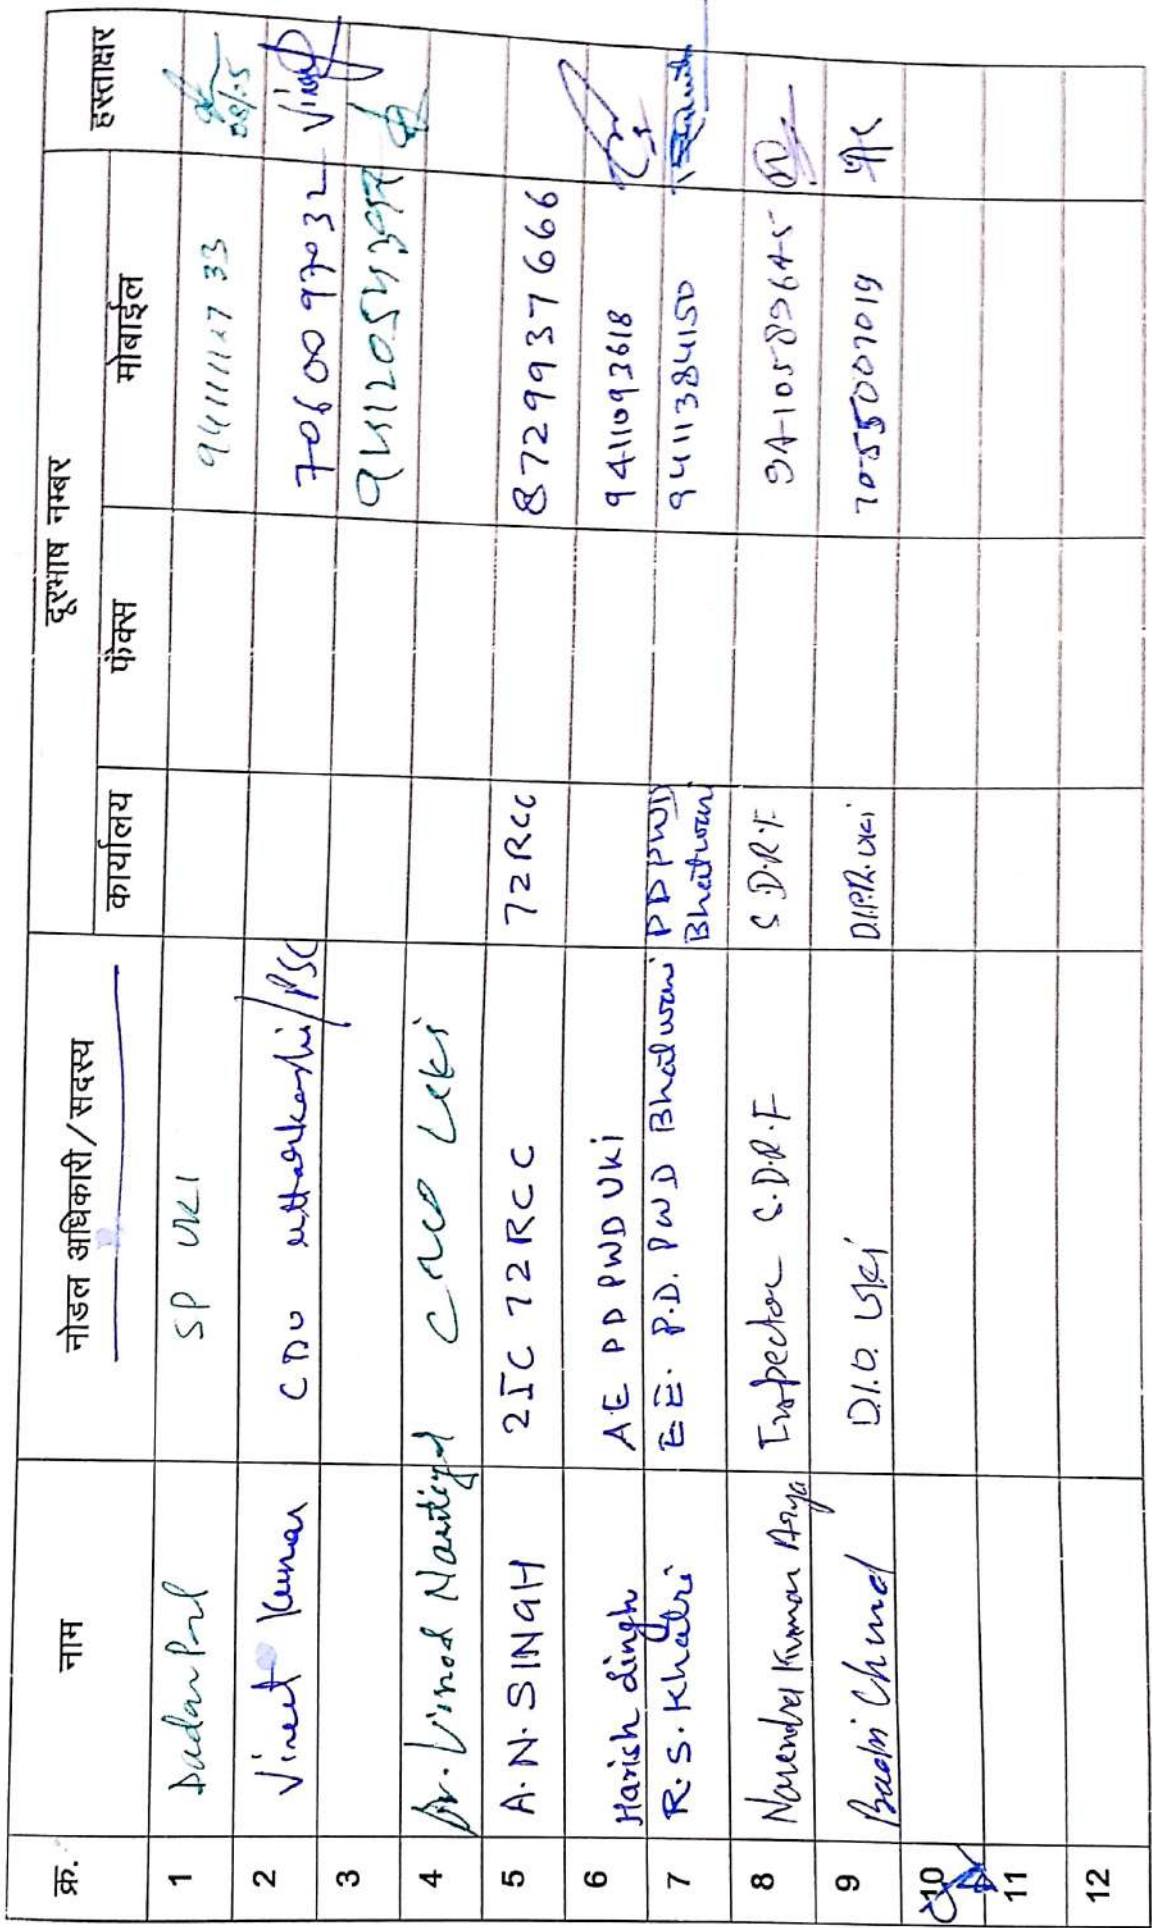 क्र. नाम नोडल अधिकारी/सदस्य दूरभाष नम्बर हस्ताक्षर
कार्यालय फैक्स मोबाईल
1 SP UKI 9411111733
08/15
2 Vineet Kumar CDO uttarkashi/PSC 7060097032
3
4 Dr. Vinod Nautiyal CMO Uki
5 A.N.SINGH 2IC 72RCC 72RCC 8729937666
6 Harish Singh AE PD PWD Uki 9411093618
7 R.S.Khatri EE. P.D. PWD Bhatwari PD PWD Bhatwari 9411384150
8 Narendra Kumar Arya Inspector S.D.R.F S.D.R.F 9410589645
9 Badri Chand D.I.O. Uki D.I.P.R. Uki 7055007019
10
11
12